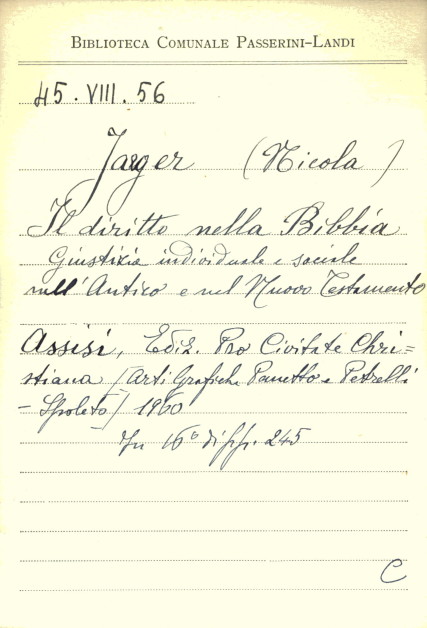 BIBLIOTECA COMUNALE PASSERINI-LANDI
45. VIII. 56
Jaeger (Nicola)
Il diritto nella Bibbia
Giustizia individuale e sociale
nell'Antico e nel Nuovo Testamento
Assisi, Ediz. Pro Civitate Chri=
stiana [Arti Grafiche Panetto e Petrelli
- Spoleto] 1960
In 16° di pp. 245
C